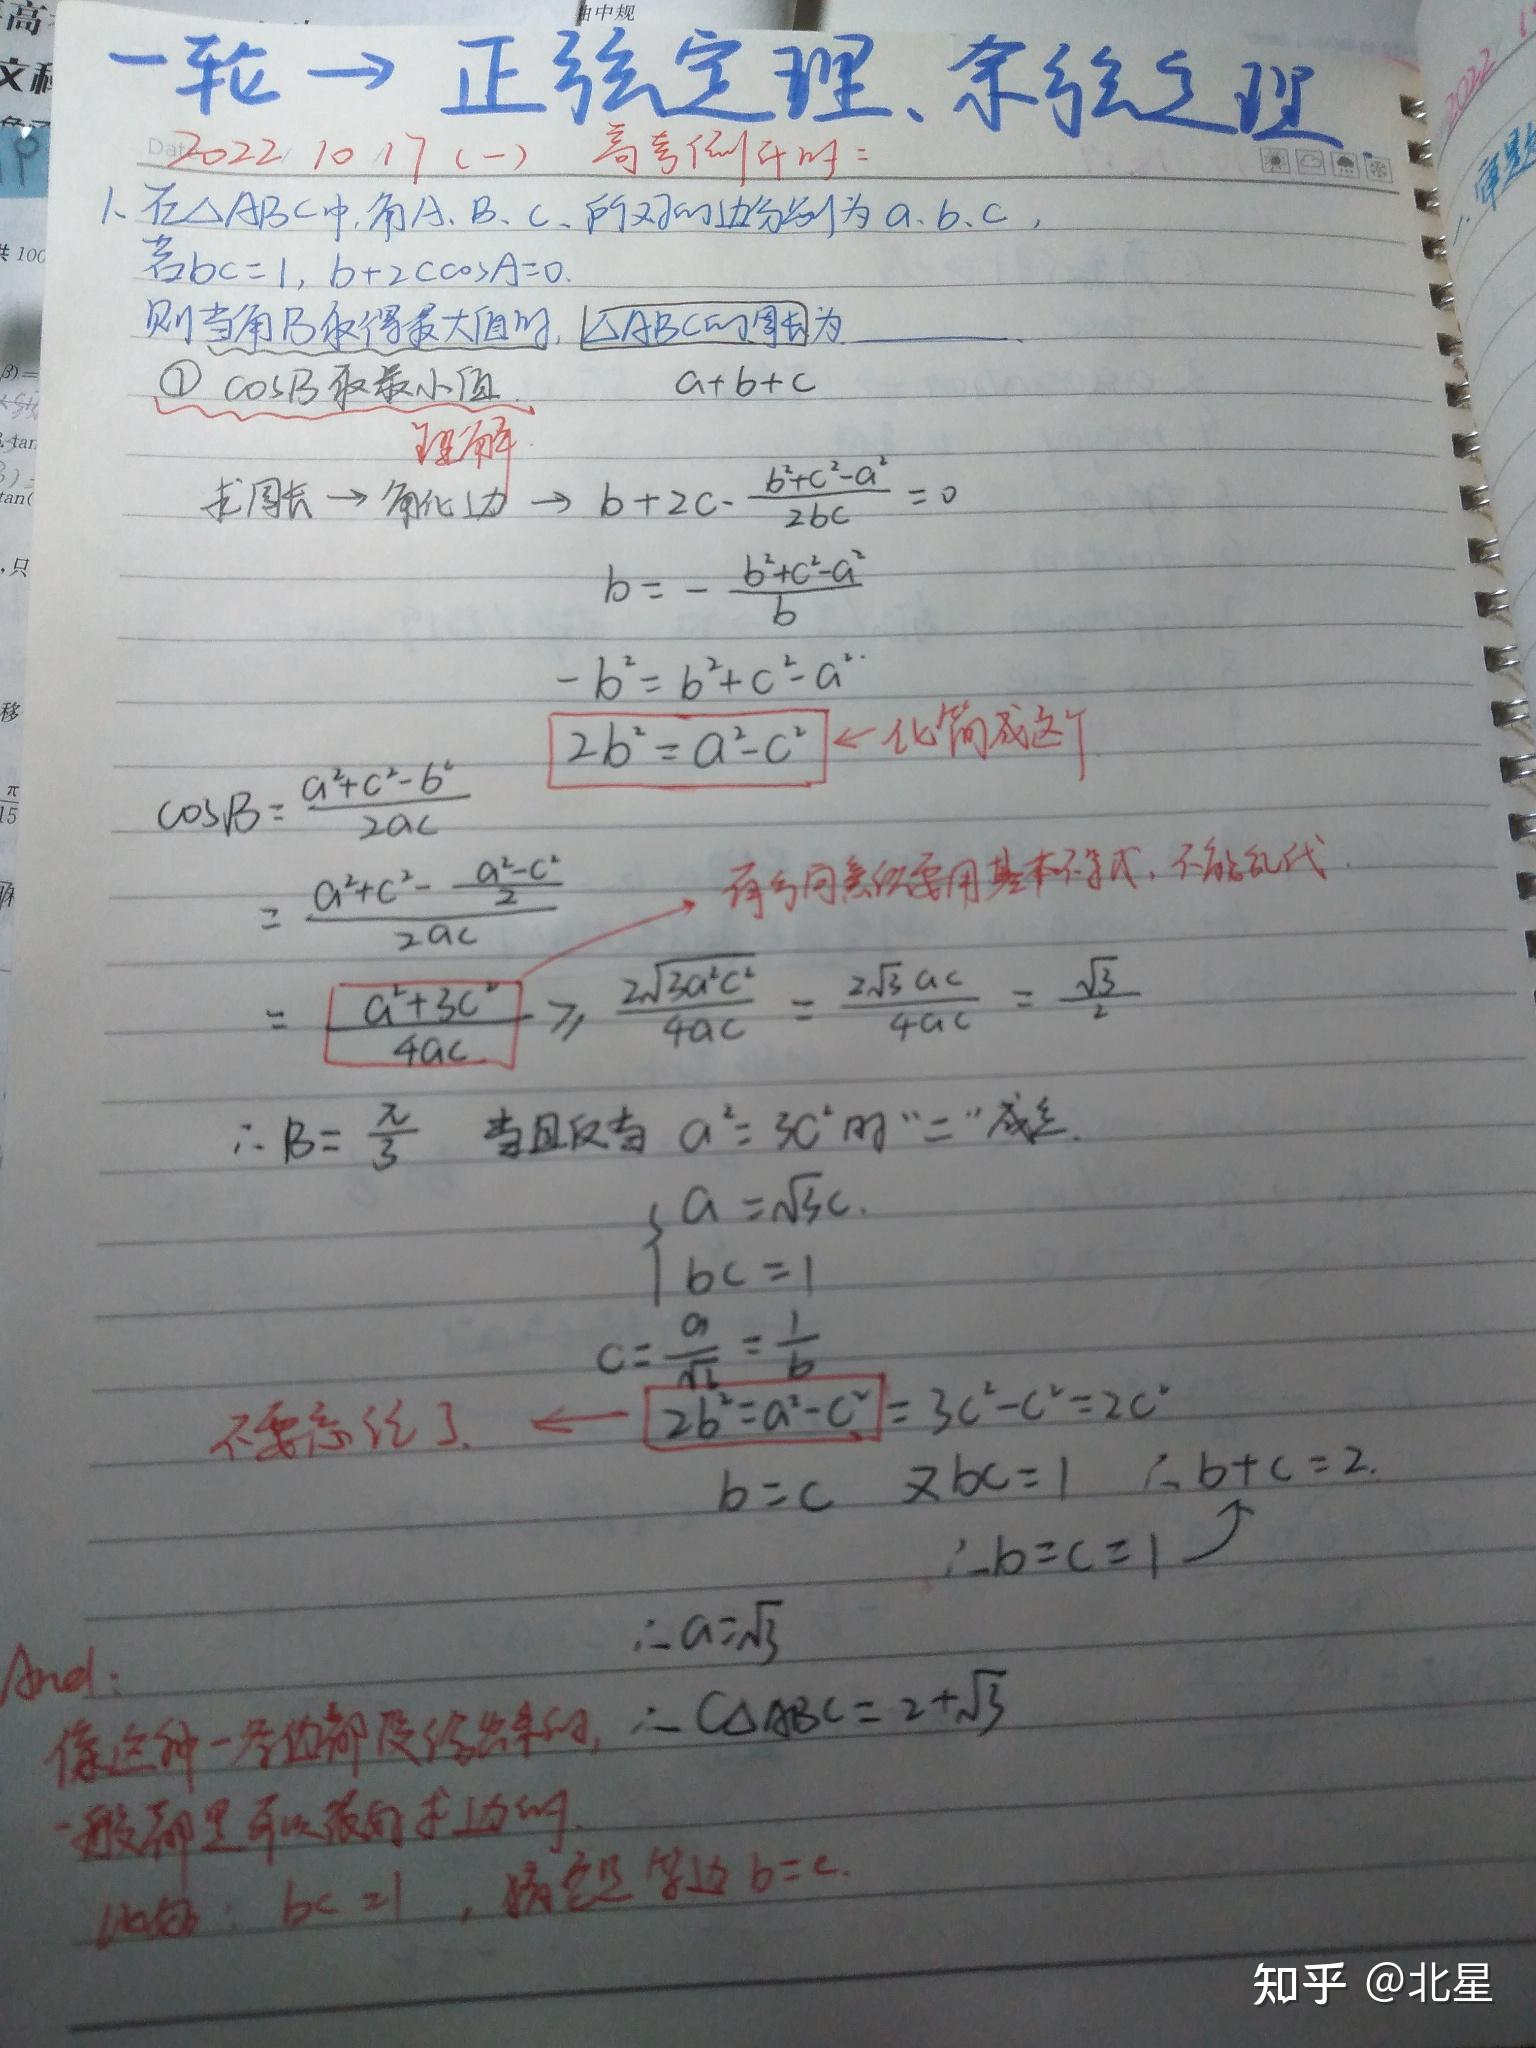 一轮→正弦定理、余弦定理
Date 2022 10 17 (一) 高考倒计时:
1、在△ABC中,角A、B、C、所对的边分别为a、b、c,
若bc=1, b+2ccosA=0.
则当角B取得最大值时,△ABC的周长为
① cosB取最小值 a+b+c
理解
求周长→角化边→b+2c·\frac{b²+c²-a²}{2bc}=0
b=-\frac{b²+c²-a²}{b}
-b²=b²+c²-a²
2b²=a²-c² ←化简成这个
cosB=\frac{a²+c²-b²}{2ac}
=\frac{a²+c²-\frac{a²-c²}{2}}{2ac} 要用基本不等式,不能乱代.
=\frac{a²+3c²}{4ac}≥\frac{2√3a²c²}{4ac}=\frac{2√3ac}{4ac}=\frac{√3}{2}
∴B=\frac{π}{3} 当且仅当 a²=3c²时"="成立.
a=√3c.
bc=1
c=\frac{a}{√3}=\frac{1}{b}
不要忘记了. ← 2b²=a²-c²=3c²-c²=2c²
b=c 又bc=1 ∴b+c=2.
∴b=c=1
∴a=√3
And:
像这种一条边都没给出来的, ∴C△ABC=2+√3
一般都是可以求边的.
比如: bc=1 , b=c.
知乎 @北星